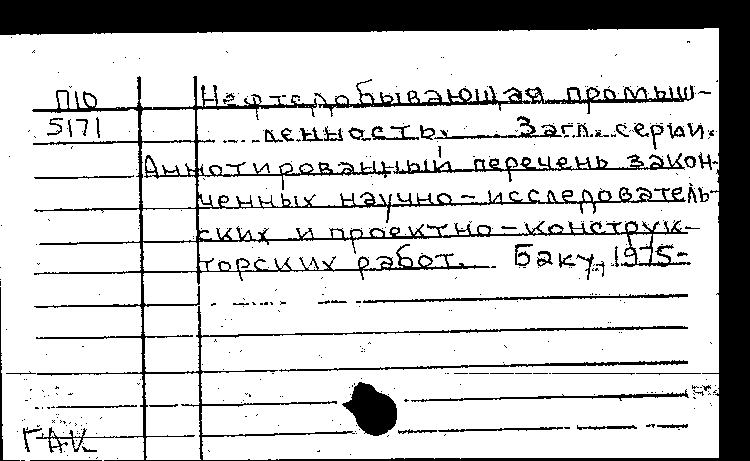 П10 Нефтедобывающая промыш-
5171 ленность. Загл. серии.
Аннотированный перечень закон-
ченных научно-исследователь-
ских и проектно-конструк-
торских работ. Баку, 1975-
ГАК